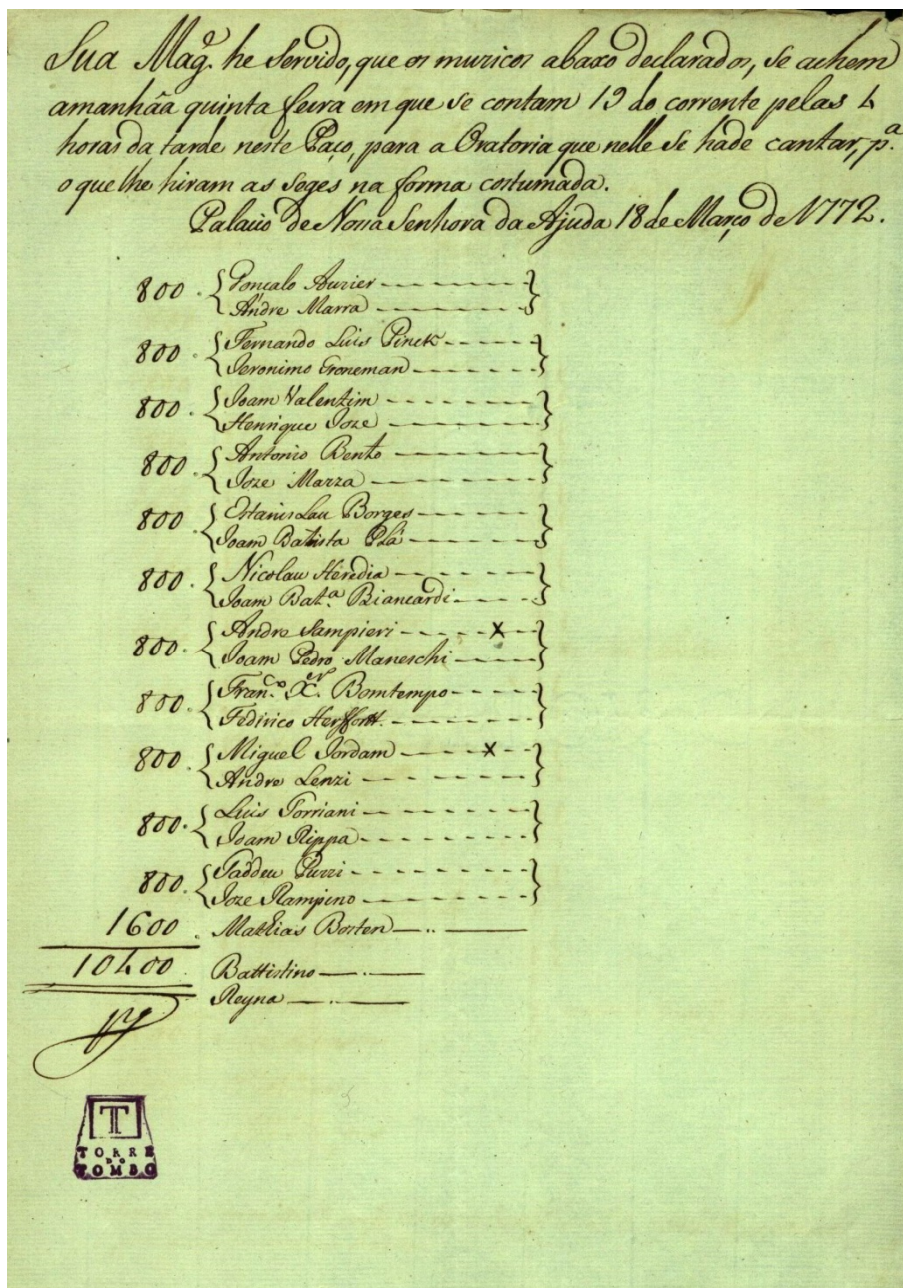 Sua Mag.e he Servido, que os muzicos abaxo declarados, se achem
amanhãa quinta feira em que se contam 19 do corrente pelas 4
horas da tarde neste Paço, para a Oratoria que nelle se hade cantar, p.a
o que lhe hiram as Seges na forma costumada.
Palacio de Nossa Senhora da Ajuda 18 de Março de 1772.
800. Goncalo Auzier
Andre Marra
800. Fernando Luis Pinck
Jeronimo Groneman
800. Joam Valentim
Henrique Joze
800. Antonio Bento
Joze Mazza
800. Estanislau Borges
Joam Batista Plà
800. Nicolau Heredia
Joam Bat.a Biancardi
800. Andre Sampieri X
Joam Pedro Maneschi
800. Fran.co X.er Bomtempo
Federico
800. Miguel Jordam X
Andre Lenzi
800. Luis Torriani
Joam Rippa
800. Taddeu Puzzi
Joze Rampino
1600. Mathias Bosten
10400. Battistino
Reyna
T
TORRE
DO
TOMBO